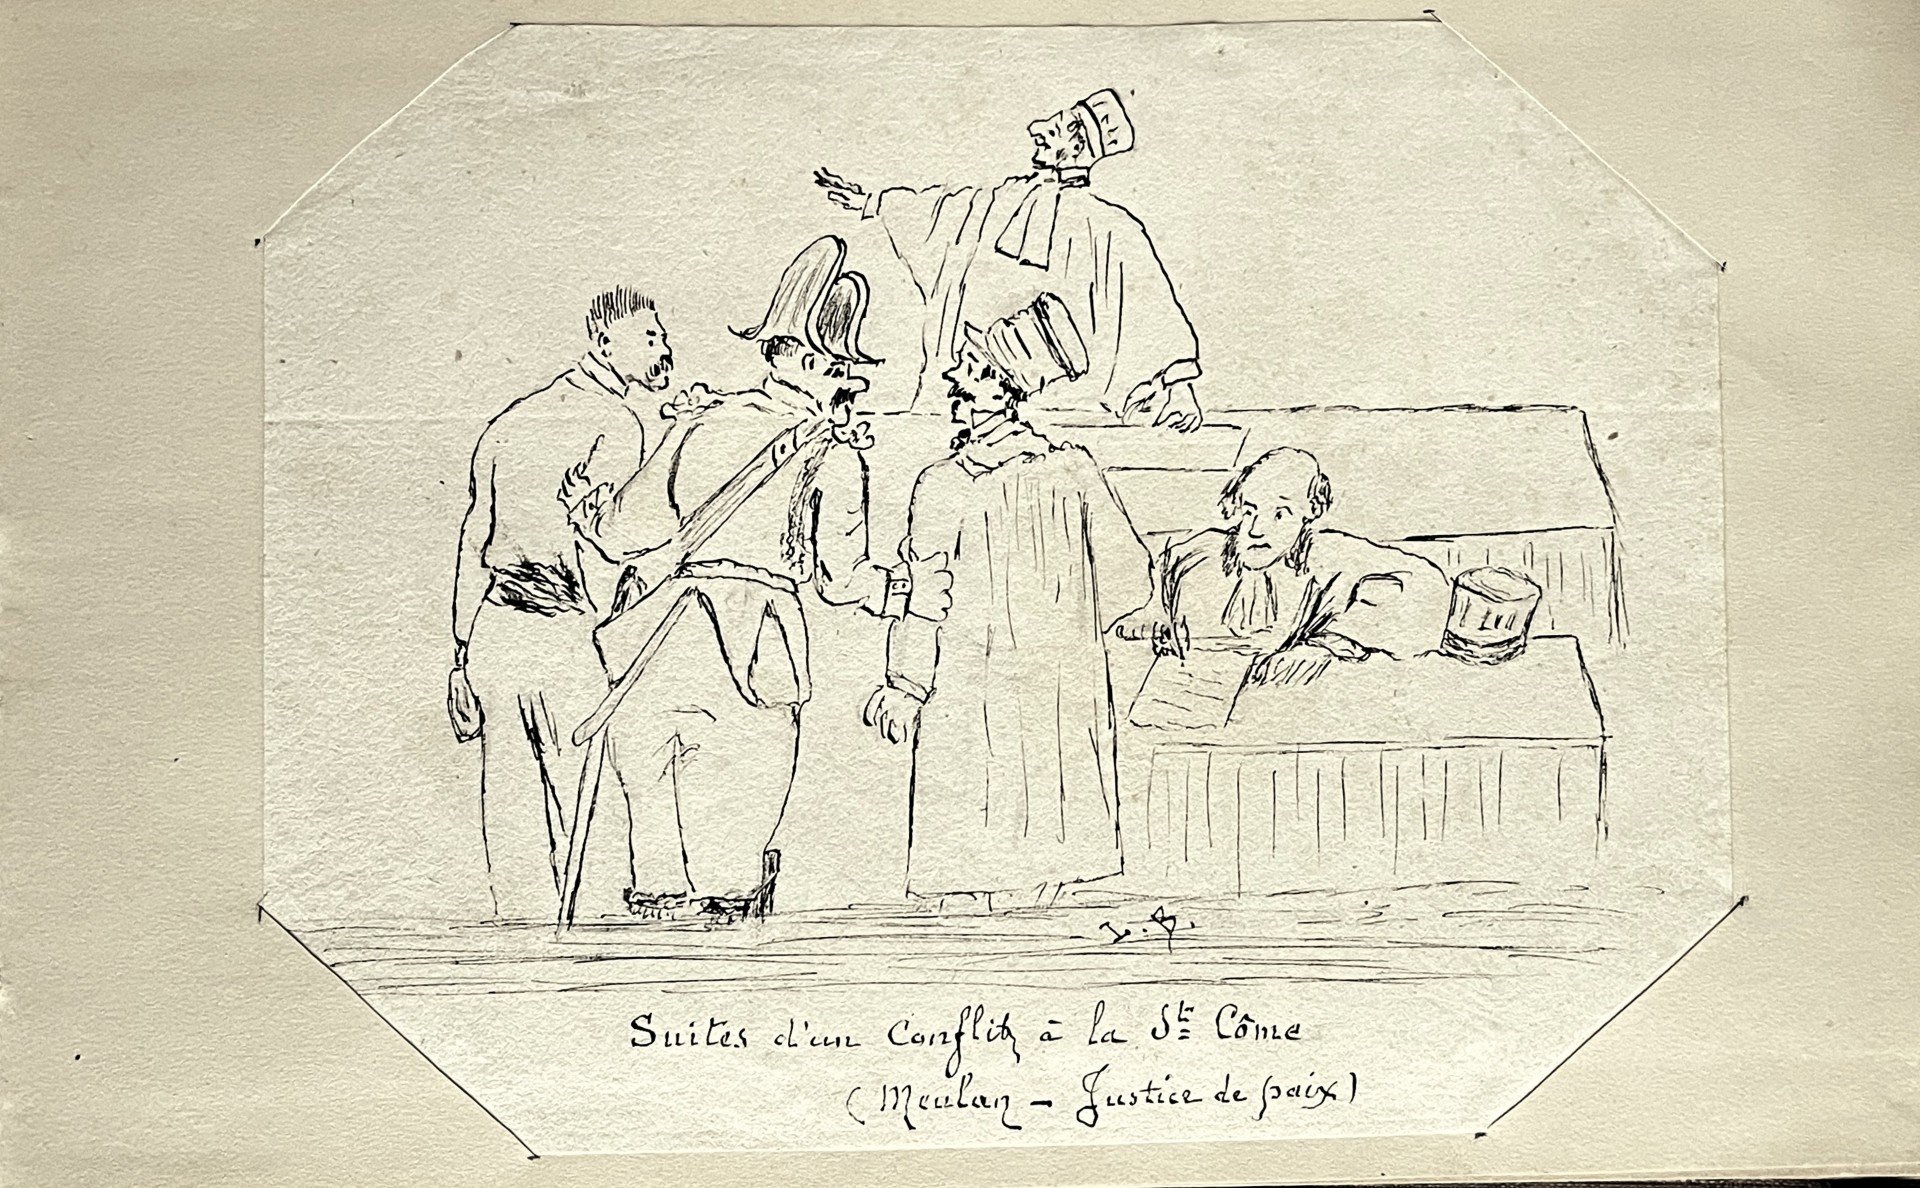 L. B.
Suites d'un Conflit à la Ste Côme
(Meulan - Justice de paix)